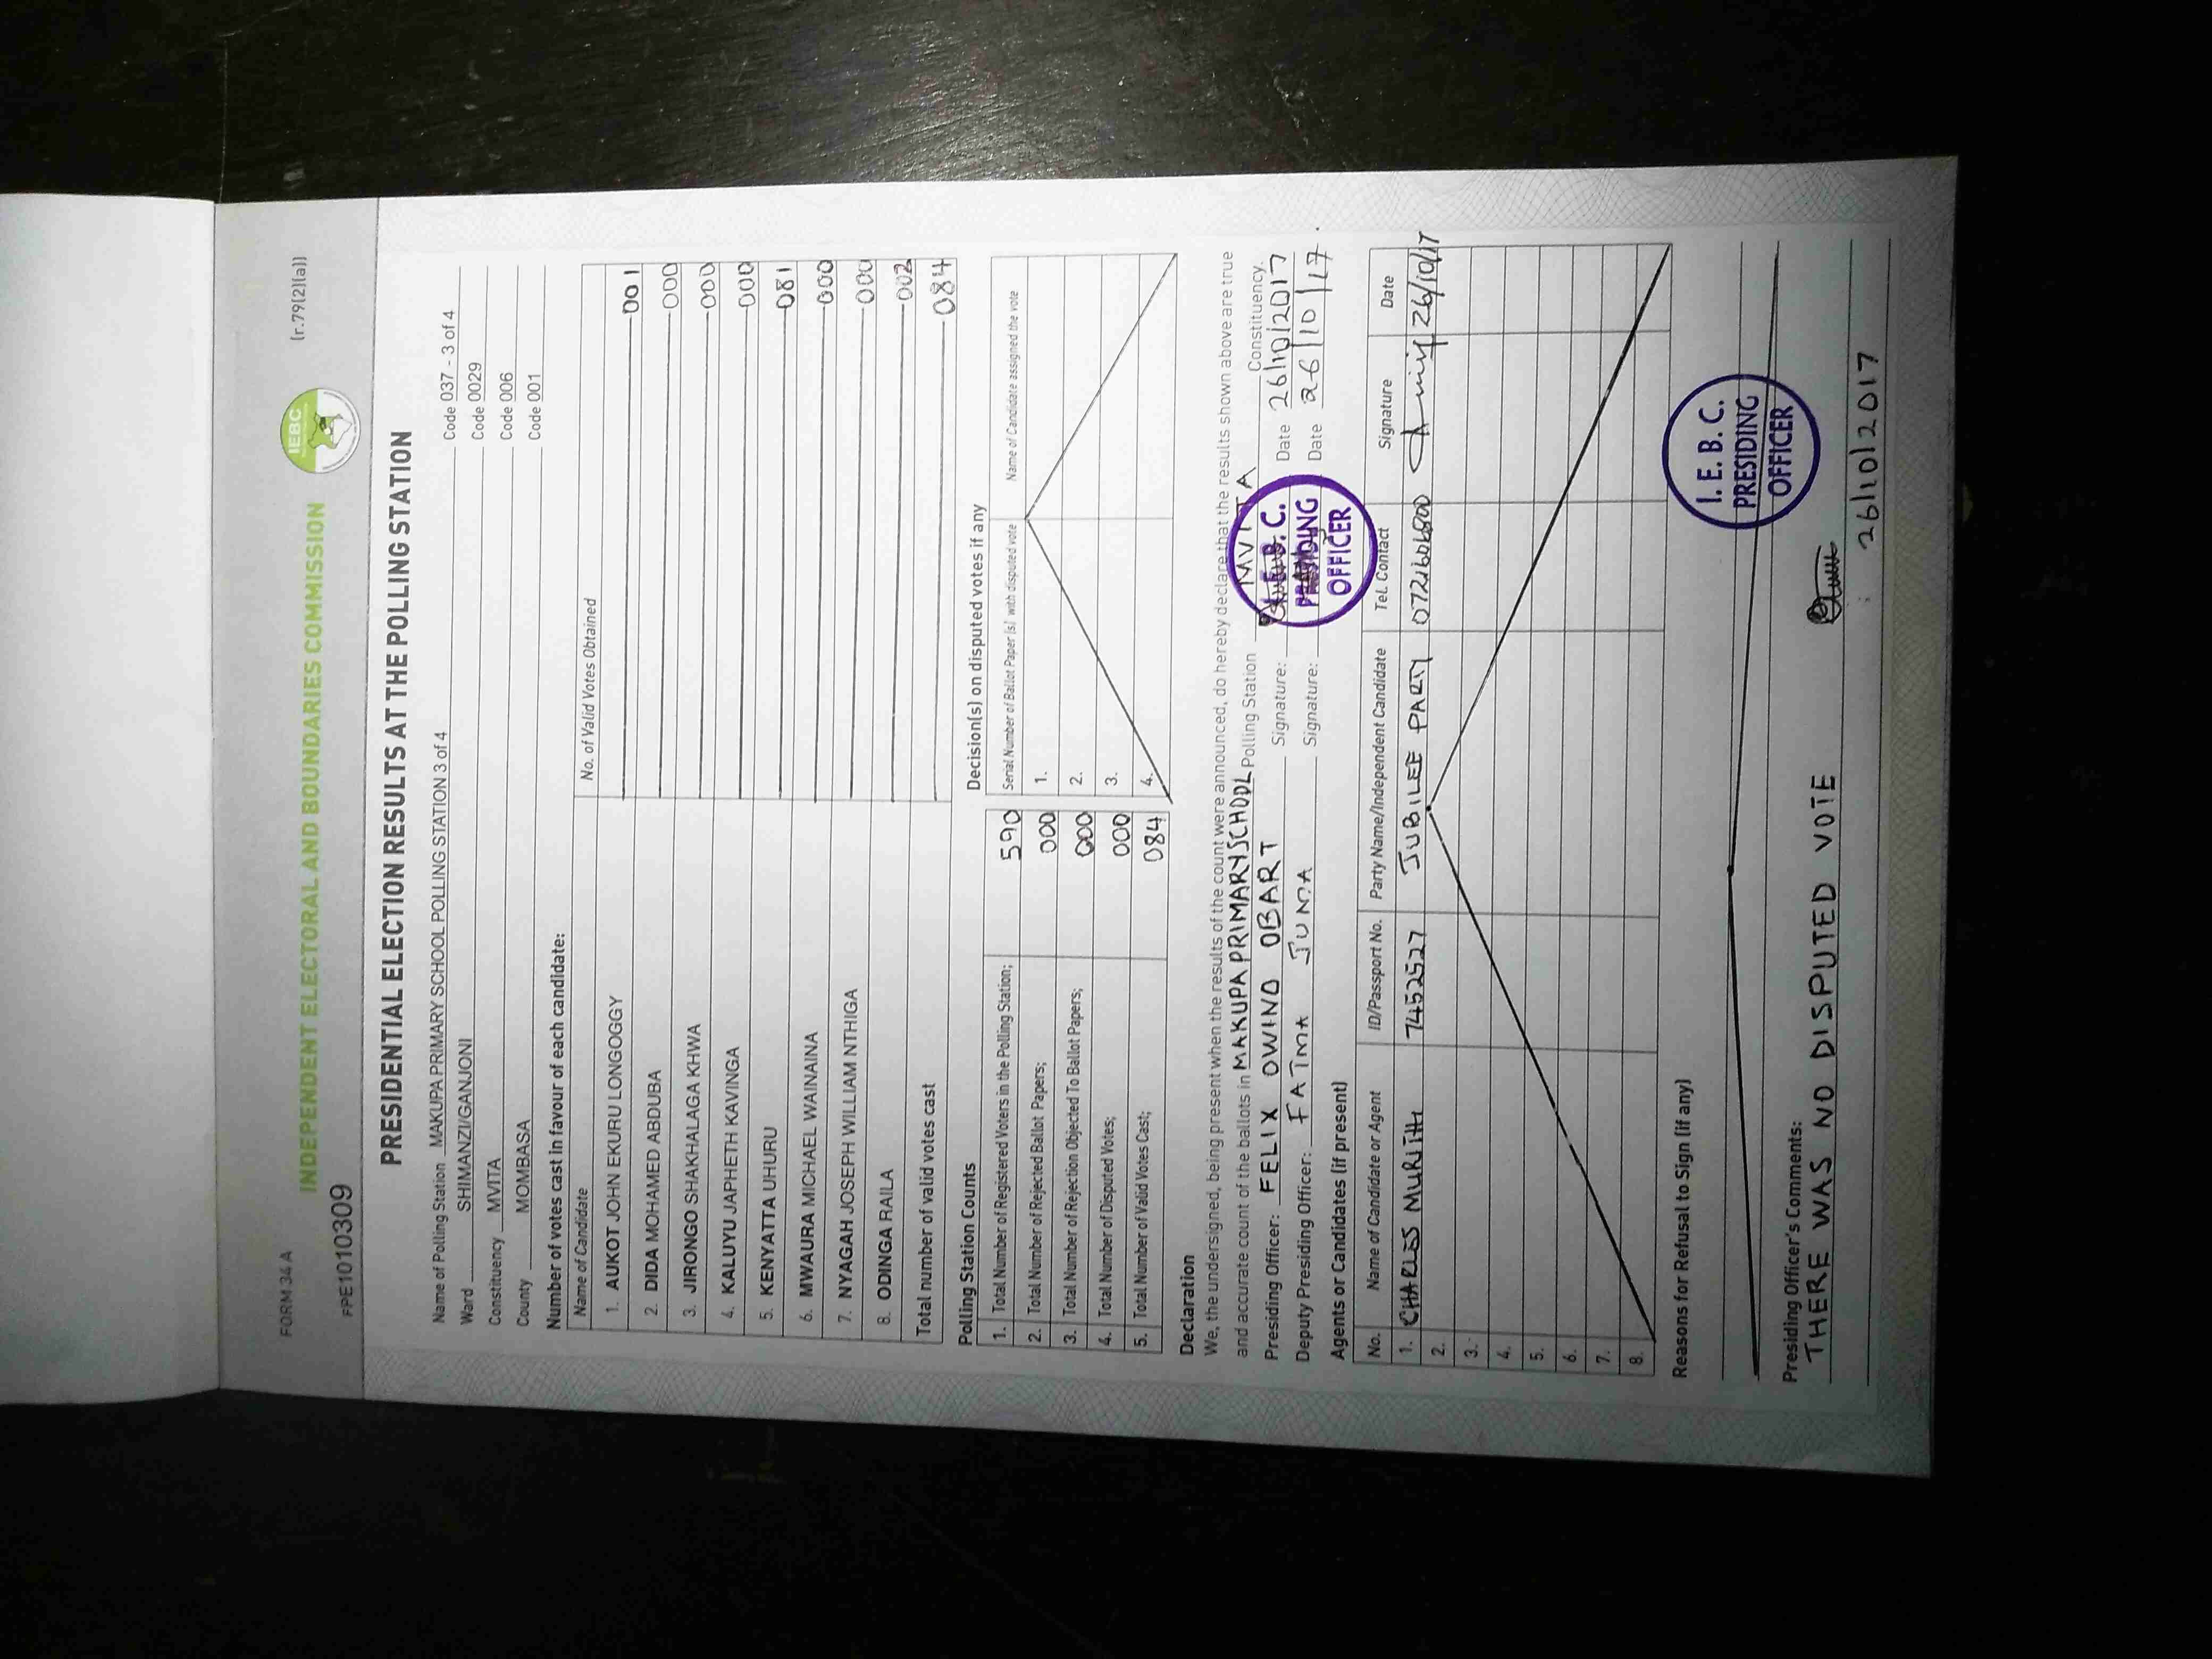 FORM 34 A
(r.79(2)(a))
IEBC
INDEPENDENT ELECTORAL AND BOUNDARIES COMMISSION
FPE1010309
PRESIDENTIAL ELECTION RESULTS AT THE POLLING STATION
Name of Polling Station MAKUPA PRIMARY SCHOOL POLLING STATION 3 of 4 Code 037 - 3 of 4
Ward SHIMANZI/GANJONI Code 0029
Constituency MVITA Code 006
County MOMBASA Code 001
Number of votes cast in favour of each candidate:
Name of Candidate No. of Valid Votes Obtained
1. AUKOT JOHN EKURU LONGOGGY 001
2. DIDA MOHAMED ABDUBA 000
3. JIRONGO SHAKHALAGA KHWA 000
4. KALUYU JAPHETH KAVINGA 000
5. KENYATTA UHURU 081
6. MWAURA MICHAEL WAINAINA 000
7. NYAGAH JOSEPH WILLIAM NTHIGA 000
8. ODINGA RAILA 002
Total number of valid votes cast 084
Polling Station Counts
1. Total Number of Registered Voters in the Polling Station; 590
2. Total Number of Rejected Ballot Papers; 000
3. Total Number of Rejection Objected To Ballot Papers; 000
4. Total Number of Disputed Votes; 000
5. Total Number of Valid Votes Cast; 084
Decision(s) on disputed votes if any
Serial Number of Ballot Paper (s) with disputed vote Name of Candidate assigned the vote
1.
2.
3.
4.
Declaration
We, the undersigned, being present when the results of the count were announced, do hereby declare that the results shown above are true
and accurate count of the ballots in MAKUPA PRIMARY SCHOOL Polling Station MVITA Constituency.
Presiding Officer: FELIX OWINO OBART Signature: Date 26/10/2017
Deputy Presiding Officer: FATMA JUMA Signature: Date 26/10/17.
I. E. B. C.
PRESIDING
OFFICER
Agents or Candidates (if present)
No. Name of Candidate or Agent ID/Passport No. Party Name/Independent Candidate Tel. Contact Signature Date
1. CHARLES MURITHI 7452527 JUBILEE PARTY 26/10/17
2.
3.
4.
5.
6.
7.
8.
Reasons for Refusal to Sign (if any)
I. E. B. C.
PRESIDING
OFFICER
Presiding Officer's Comments:
THERE WAS NO DISPUTED VOTE
26/10/2017